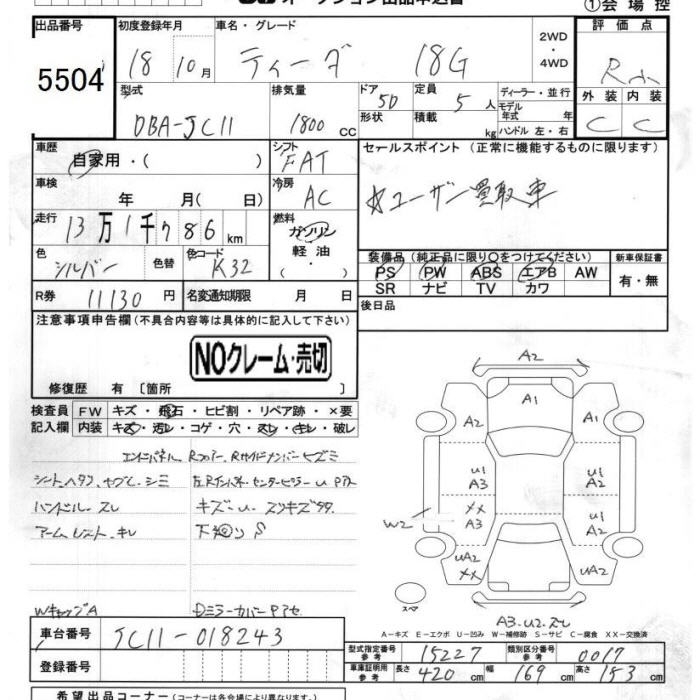 ①会場控
出品番号 初度登録年月 車名・グレード 2WD・4WD 評価点
5504 18 10月 ティーダ 18G R
型式 排気量 ドア 5D 定員 5人 ディーラー・並行 外装 内装
DBA-JC11 1800cc 形状 積載 kg モデル年式 年 ハンドル 左・右 C C
車歴 シフト セールスポイント (正常に機能するものに限ります)
自家用・( ) FAT
車検 冷房 ☆ユーザー買取車
年 月( 日) AC
走行 13万1千786km 燃料 ガソリン・軽油・( )
装備品(純正品に限り○をつけてください) 新車保証書
色 シルバー 色替 色コード K32
PS PW ABS エアB AW 有・無
SR ナビ TV カワ
R券 11130円 名変通知期限 月 日
後日品
注意事項申告欄(不具合内容等は具体的に記入して下さい)
NOクレーム・売切
修復歴 有 [箇所 ]
検査員記入欄 FW キズ・飛石・ヒビ割・リペア跡・×要
内装 キズ・汚レ・コゲ・穴・スレ・キレ・破レ
シートヘタリ
ハンドル スレ
アームレスト キレ
WキャップA
A2
A1
A2 A1
U1 A3 U1 A2
W2 XX A3 U1 A2
UA2 XX UA2
スペア
A3.U2.スレ
A-キズ E-エクボ U-凹ミ W-補修跡 S-サビ C-腐食 XX-交換済
車台番号 JC11-018243
型式指定番号 参考 15227 類別区分番号 参考 0017
登録番号 車庫証明用 参考 長さ 420cm 幅 169cm 高さ 153cm
希望出品コーナー(コーナーは各会場により異なります。)